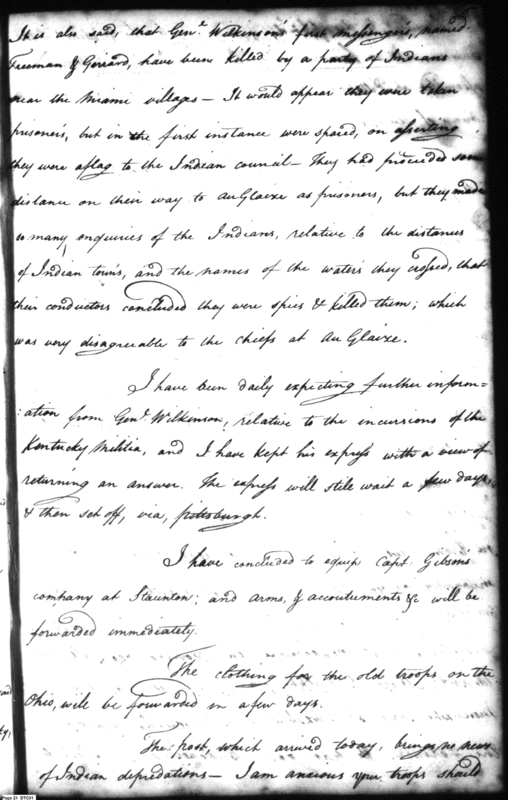 It is also said, that Genl. Wilkinson's first messengers, named
Freeman & Gerrard, have been killed by a party of Indians
near the Miami villages — It would appear they were taken
prisoners, but in the first instance were spared, on asserting
they were a flag to the Indian council — They had proceeded some
distance on their way to Au Glaize as prisoners, but they made
so many enquiries of the Indians, relative to the distances
of Indian towns, and the names of the waters they crossed, that
their conductors concluded they were spies & killed them; which
was very disagreeable to the chiefs at Au Glaize.
I have been daily expecting further inform=
:ation from Genl. Wilkinson, relative to the incursions of the
Kentucky Militia, and I have kept his express with a view of
returning an answer. The express will stile wait a few days,
& then set off, via, Pittsburgh.
I have concluded to equip Capt. Gibson's
company at Staunton; and arms, & accoutrements &c will be
forwarded immediately.
The clothing for the old troops on the
Ohio, will be forwarded in a few days.
The post, which arrived today, brings no news
of Indian depredations — I am anxious your troops should
Page 21 DTC01